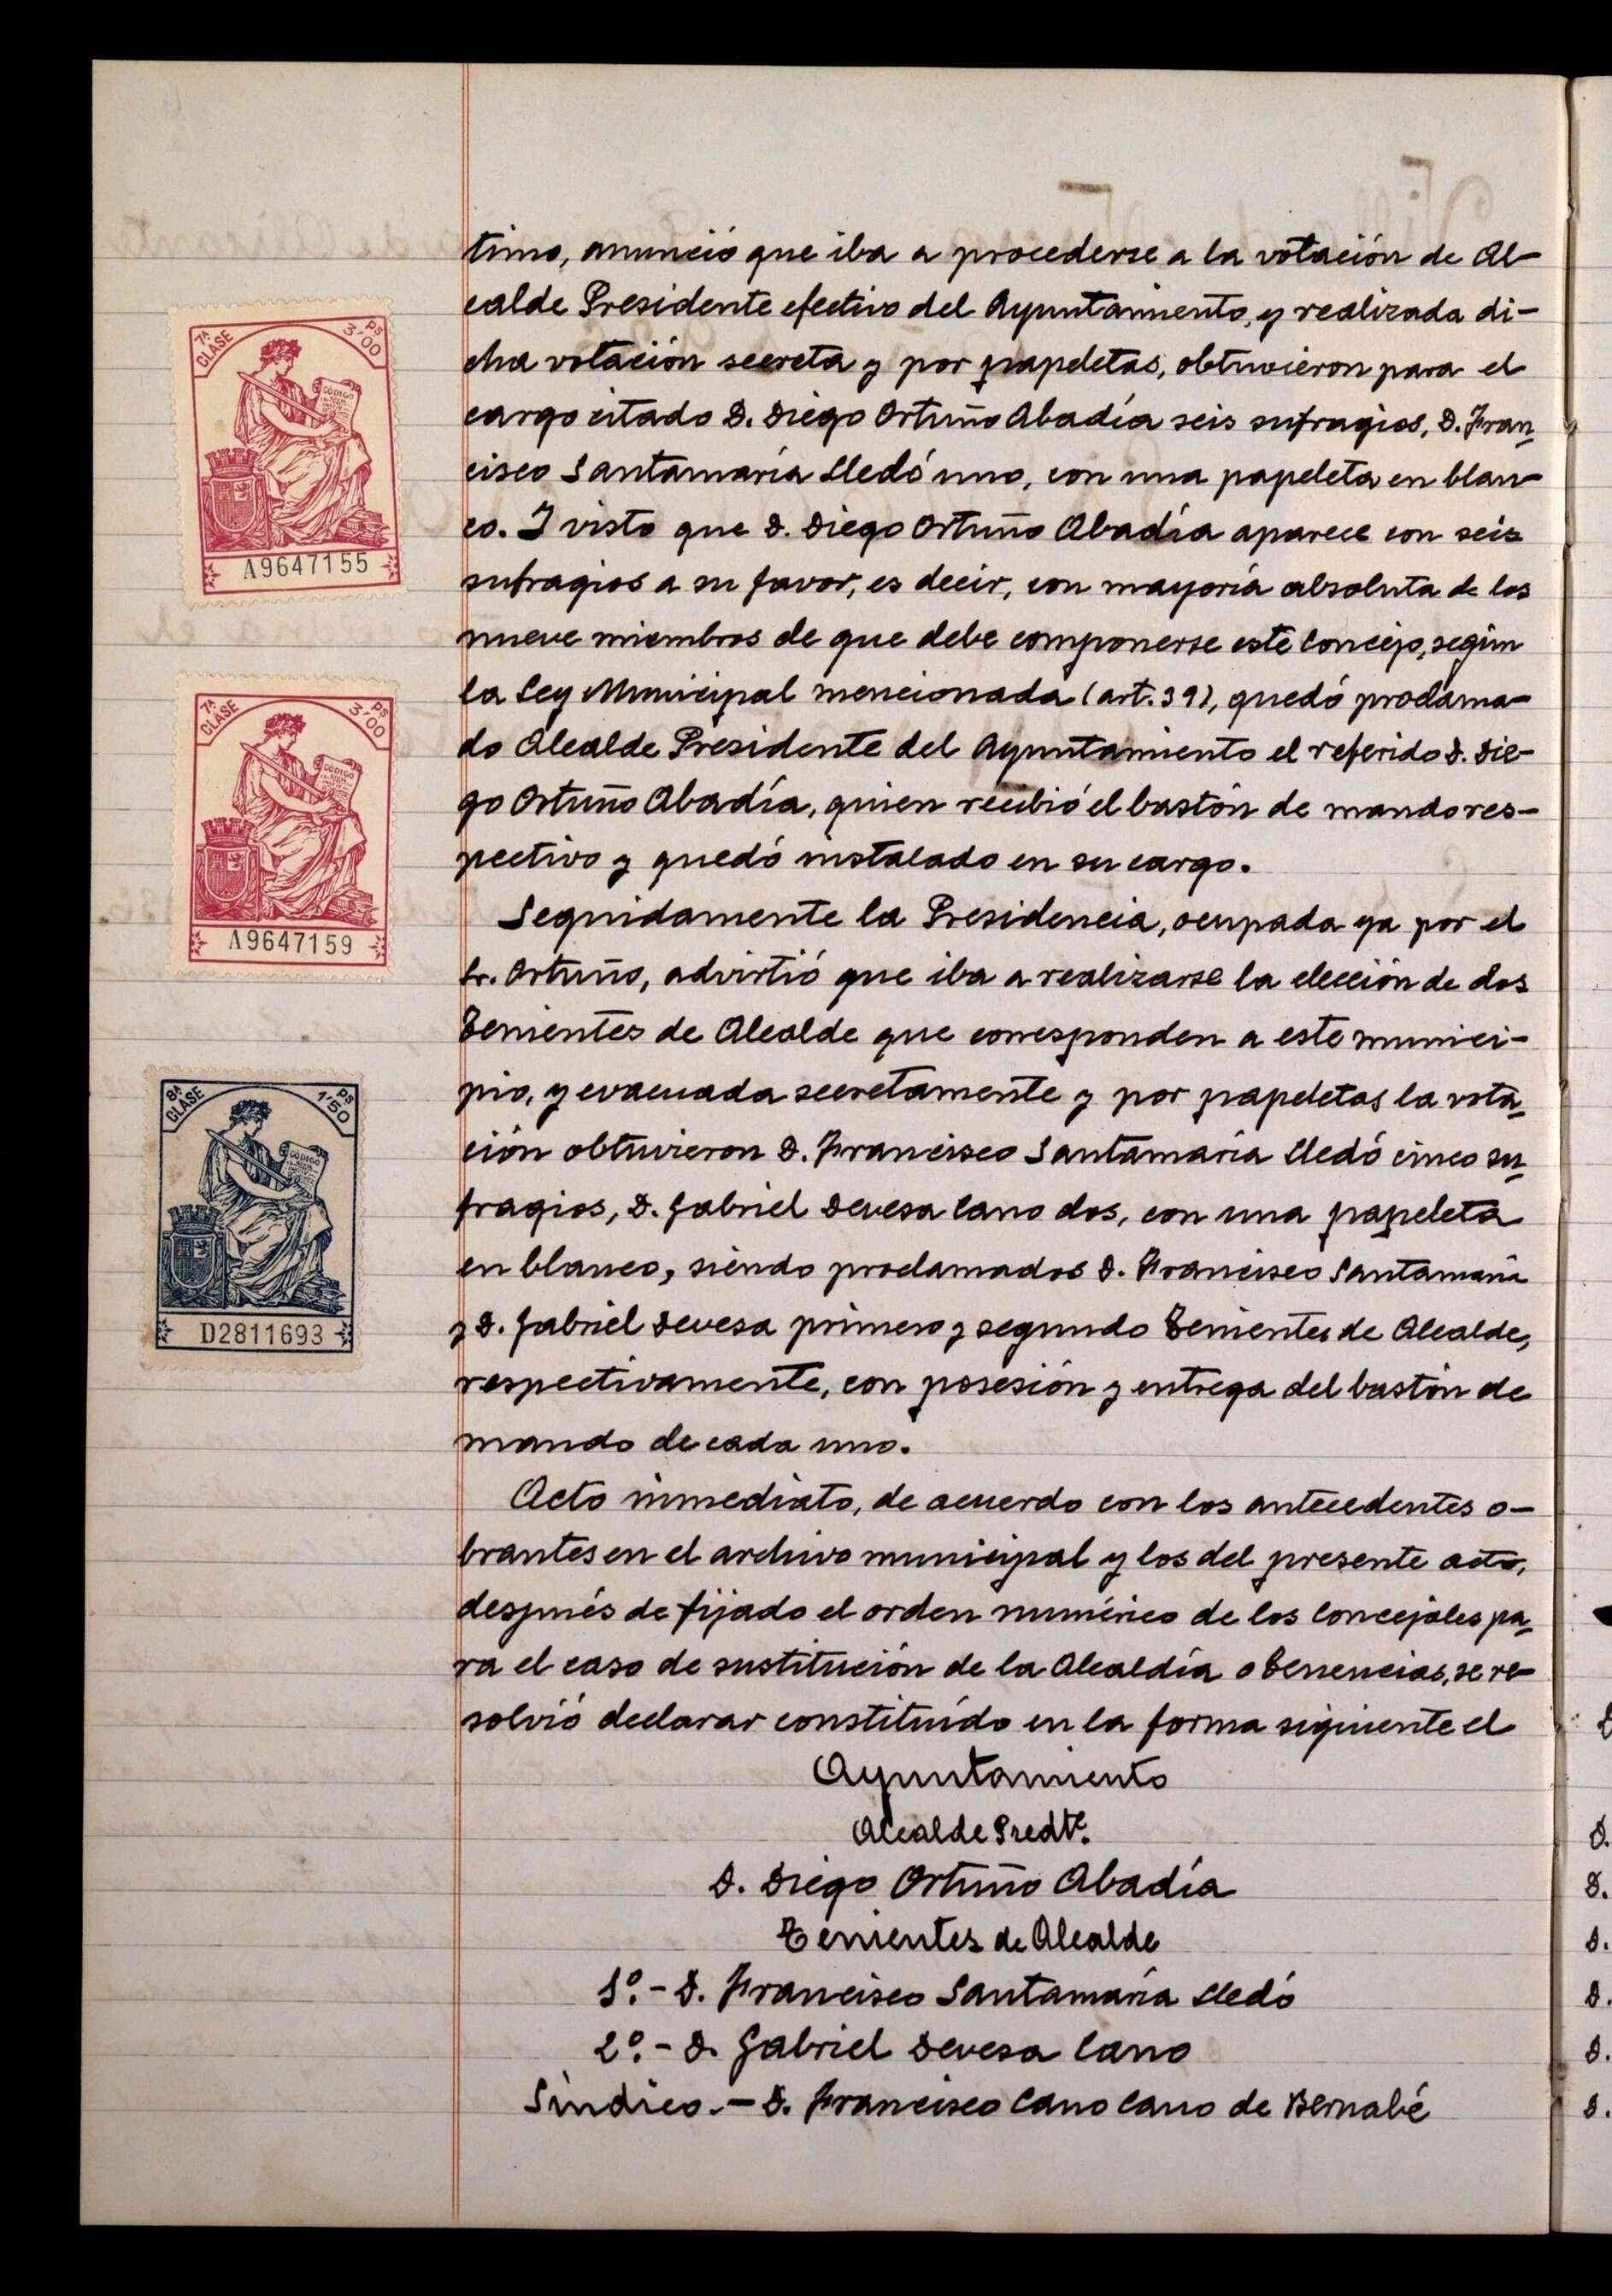 7ª CLASE
3'00 Ps
CÓDIGO
A9647155
7ª CLASE
3'00 Ps
CÓDIGO
A9647159
8ª CLASE
1'50 Ps
CÓDIGO
D2811693
timo, anunció que iba a procederse a la votación de Al-
calde Presidente efectivo del Ayuntamiento, y realizada di-
cha votación secreta y por papeletas, obtuvieron para el
cargo citado D. Diego Ortuño Abadía seis sufragios, D. Fran-
cisco Santamaría Lledó uno, con una papeleta en blan-
co. Y visto que D. Diego Ortuño Abadía aparece con seis
sufragios a su favor, es decir, con mayoría absoluta de los
nueve miembros de que debe componerse este Concejo, según
la Ley Municipal mencionada (art. 39), quedó proclama-
do Alcalde Presidente del Ayuntamiento el referido D. Die-
go Ortuño Abadía, quien recibió el bastón de mando res-
pectivo y quedó instalado en su cargo.
Seguidamente la Presidencia, ocupada ya por el
Sr. Ortuño, advirtió que iba a realizarse la elección de dos
Tenientes de Alcalde que corresponden a este munici-
pio, y evacuada secretamente y por papeletas la vota-
ción obtuvieron D. Francisco Santamaría Lledó cinco su-
fragios, D. Gabriel Devesa Cano dos, con una papeleta
en blanco, siendo proclamados D. Francisco Santamaría
y D. Gabriel Devesa primero y segundo Tenientes de Alcalde,
respectivamente, con posesión y entrega del bastón de
mando de cada uno.
Acto inmediato, de acuerdo con los antecedentes o-
brantes en el archivo municipal y los del presente acto,
después de fijado el orden numérico de los Concejales pa-
ra el caso de sustitución de la Alcaldía o Tenencias, se re-
solvió declarar constituído en la forma siguiente el
Ayuntamiento
Alcalde Predte.
D. Diego Ortuño Abadía
Tenientes de Alcalde
1º.- D. Francisco Santamaría Lledó
2º.- D. Gabriel Devesa Cano
Síndico.- D. Francisco Cano Cano de Bernabé
D.
D.
D.
D.
D.
D.